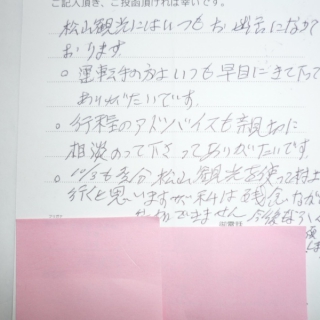 ご記入頂き、ご投函頂ければ幸いです。
松山観光にはいつもお世話になって
おります。
○ 運転手の方はいつも早目にきて下って
ありがたいです。
○ 行程のアドバイスも親切に
相談のって下さってありがたいです。
○ 10/3も多分松山観光を使って村上
行くと思いますが私は残念ながら
できません 今後